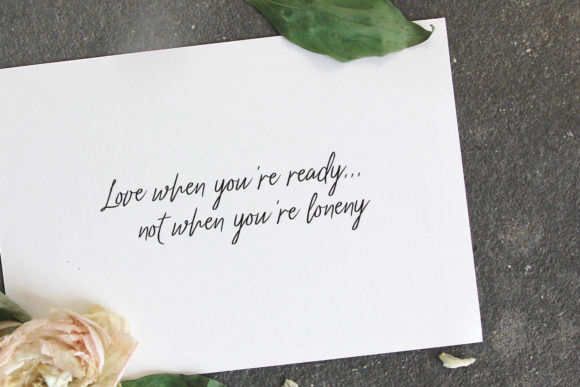 Love when you're ready...
not when you're loneny